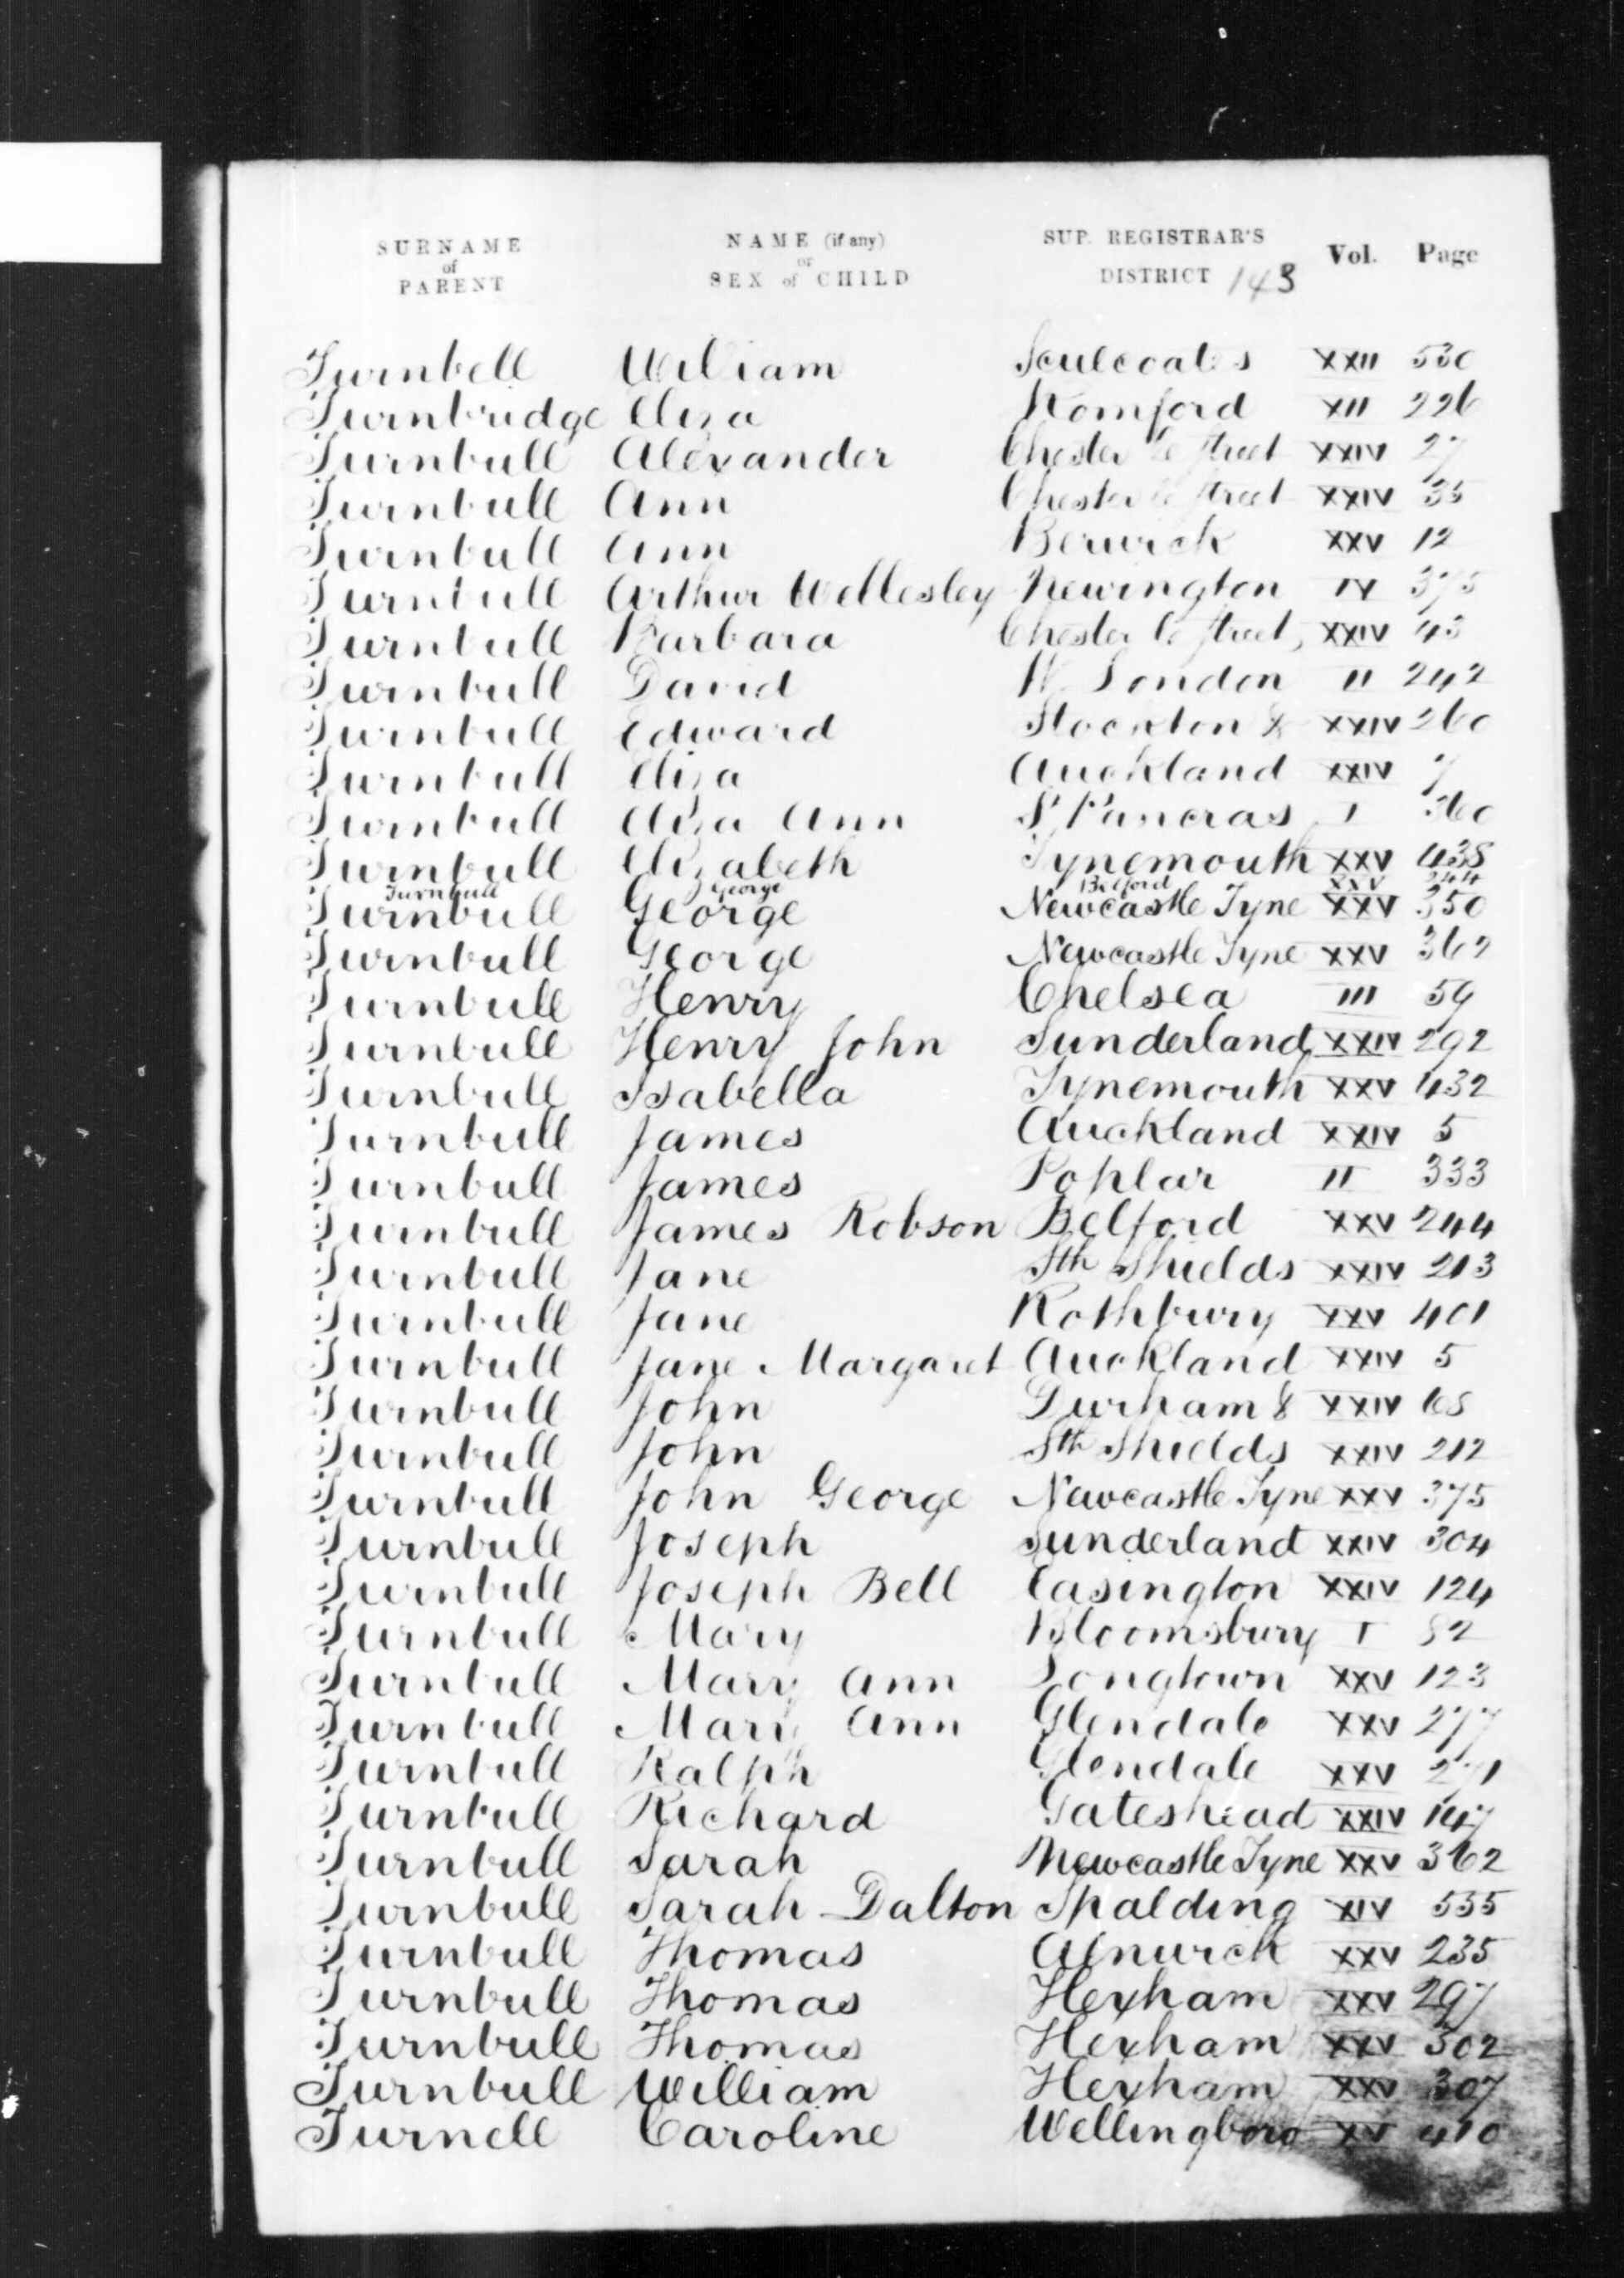 SURNAME of PARENT NAME (if any) or SEX of CHILD SUP. REGISTRAR'S DISTRICT 143 Vol. Page
Turnbell William Sculcoates XXII 530
Turnbridge Eliza Romford XII 226
Turnbull Alexander Chester le Street XXIV 27
Turnbull Ann Chester le Street XXIV 35
Turnbull Ann Berwick XXV 12
Turnbull Arthur Wellesley Newington IV 375
Turnbull Barbara Chester le Street, XXIV 43
Turnbull David W. London II 242
Turnbull Edward Stockton & XXIV 260
Turnbull Eliza Auckland XXIV 7
Turnbull Eliza Ann St Pancras I 360
Turnbull Elizabeth Tynemouth XXV 438
Turnbull George Belford XXV 244
Turnbull George Newcastle Tyne XXV 350
Turnbull George Newcastle Tyne XXV 362
Turnbull Henry Chelsea III 59
Turnbull Henry John Sunderland XXIV 292
Turnbull Isabella Tynemouth XXV 432
Turnbull James Auckland XXIV 5
Turnbull James Poplar II 333
Turnbull James Robson Belford XXV 244
Turnbull Jane Sth Shields XXIV 213
Turnbull Jane Rothbury XXV 401
Turnbull Jane Margaret Auckland XXIV 5
Turnbull John Durham & XXIV 68
Turnbull John Sth Shields XXIV 212
Turnbull John George Newcastle Tyne XXV 375
Turnbull Joseph Sunderland XXIV 304
Turnbull Joseph Bell Easington XXIV 124
Turnbull Mary Bloomsbury I 82
Turnbull Mary Ann Longtown XXV 123
Turnbull Mary Ann Glendale XXV 277
Turnbull Ralph Glendale XXV 271
Turnbull Richard Gateshead XXIV 147
Turnbull Sarah Newcastle Tyne XXV 362
Turnbull Sarah Dalton Spalding XIV 555
Turnbull Thomas Alnwick XXV 235
Turnbull Thomas Hexham XXV 297
Turnbull Thomas Hexham XXV 302
Turnbull William Hexham XXV 307
Turnell Caroline Wellingboro XV 410